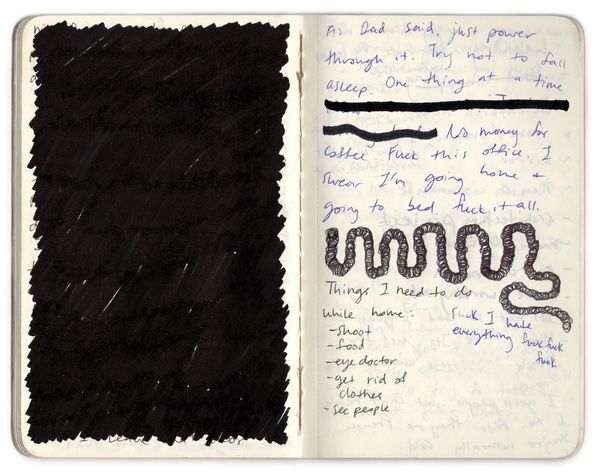 As Dad said, just power
through it. Try not to fall
asleep. One thing at a time
No money for
coffee. Fuck this office. I
swear I'm going home +
going to bed. fuck it all.
Things I need to do
while home:
-shoot
-food
-eye doctor
-get rid of
clothes
-see people
Fuck I hate
everything fuck fuck
fuck